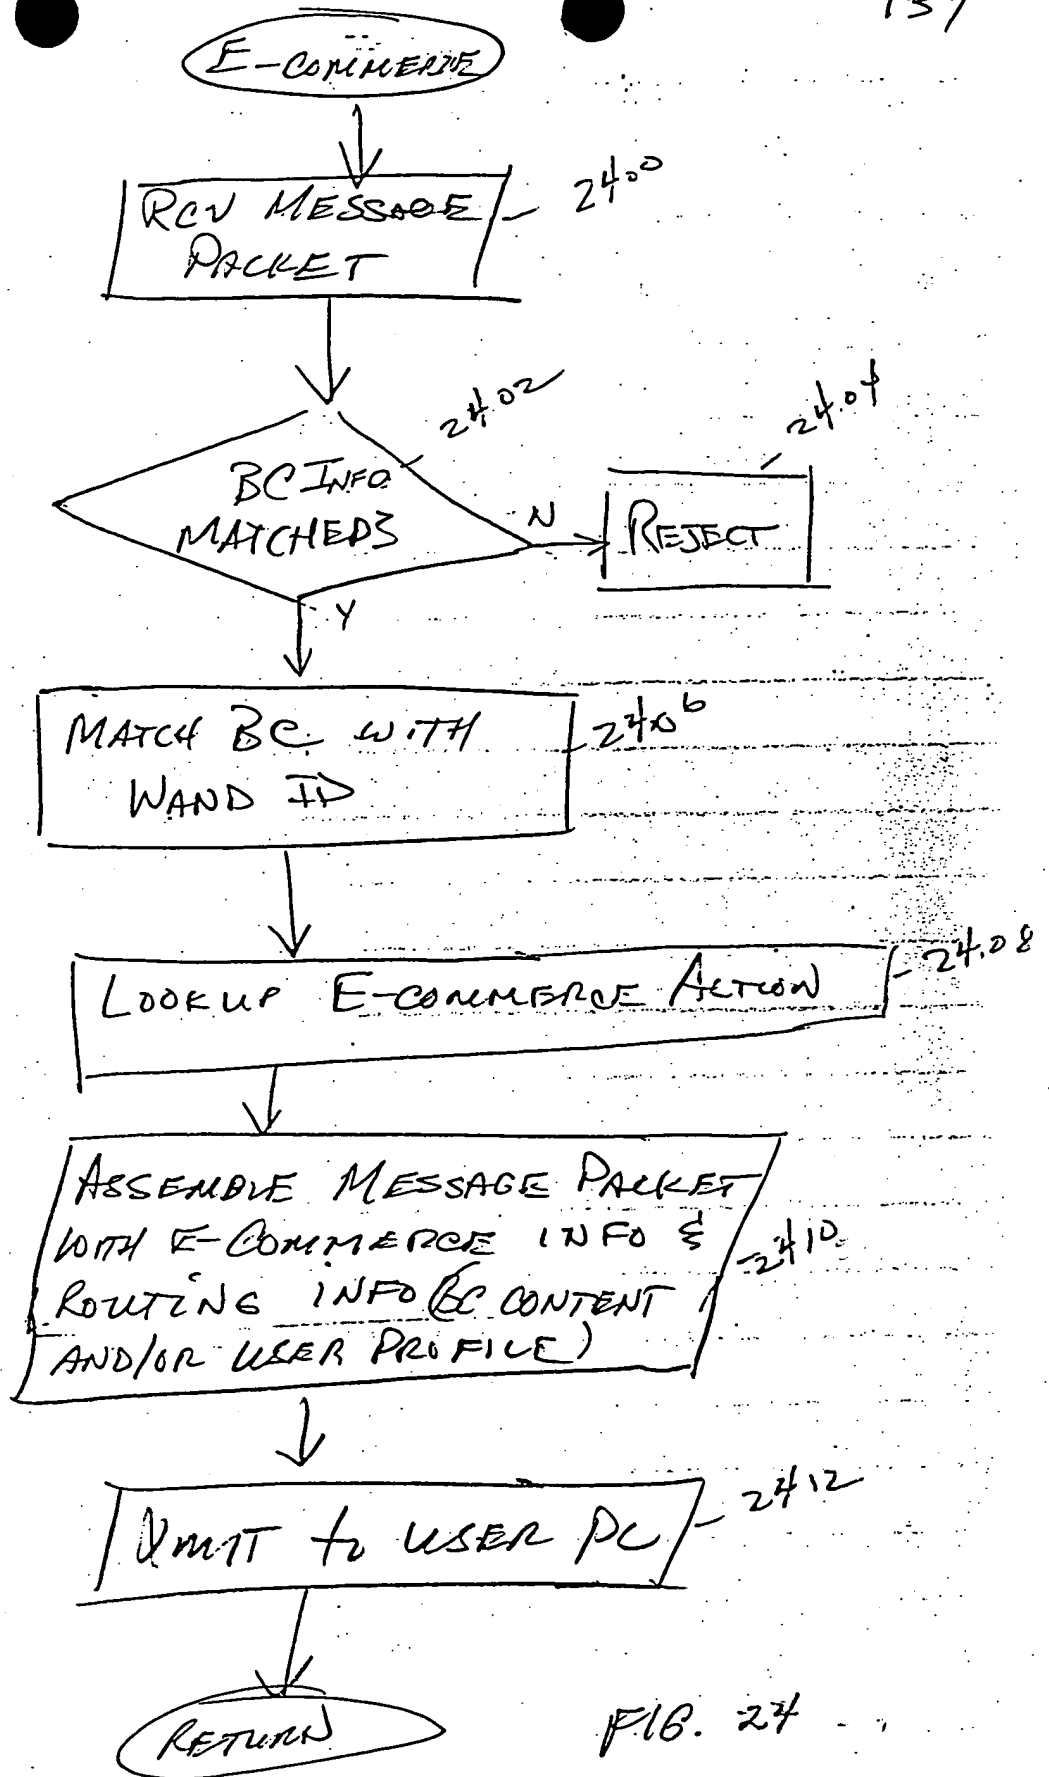 137
E-COMMERCE
RCV MESSAGE
PACKET
2400
BC INFO
MATCHED?
2402
N
REJECT
2404
Y
MATCH BC WITH
WAND ID
2406
LOOKUP E-COMMERCE ACTION
2408
ASSEMBLE MESSAGE PACKET
WITH E-COMMERCE INFO &
ROUTING INFO (BC CONTENT
AND/OR USER PROFILE)
2410
XMIT to USER PC
2412
RETURN
FIG. 24